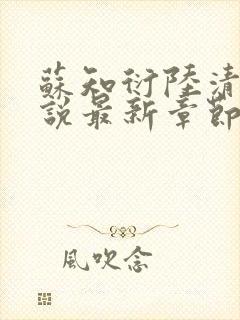 蘇知衍陸清
說最新章節
風吹念